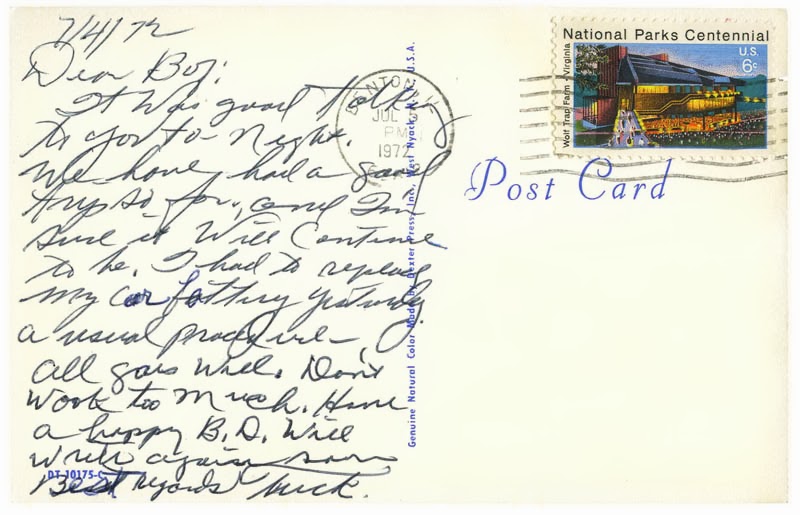 7/4/72
Dear Boz:
It was good talking
to you to night.
We have had a good
tryp so far, and I'm
sure it will continue
to be. I had to replace
my car battery yesterday
a usual procedure-
all goes well. Don't
work too much. Have
a happy B.D. Will
write again soon
Best regards
DT-10175-C
Genuine Natural Color Made By Dexter Press, Inc., West Nyack, N.Y., U.S.A.
BENTON, IL
JUL
PM
1972
National Parks Centennial
U.S.
6c
Wolf Trap Farm • Virginia
Post Card